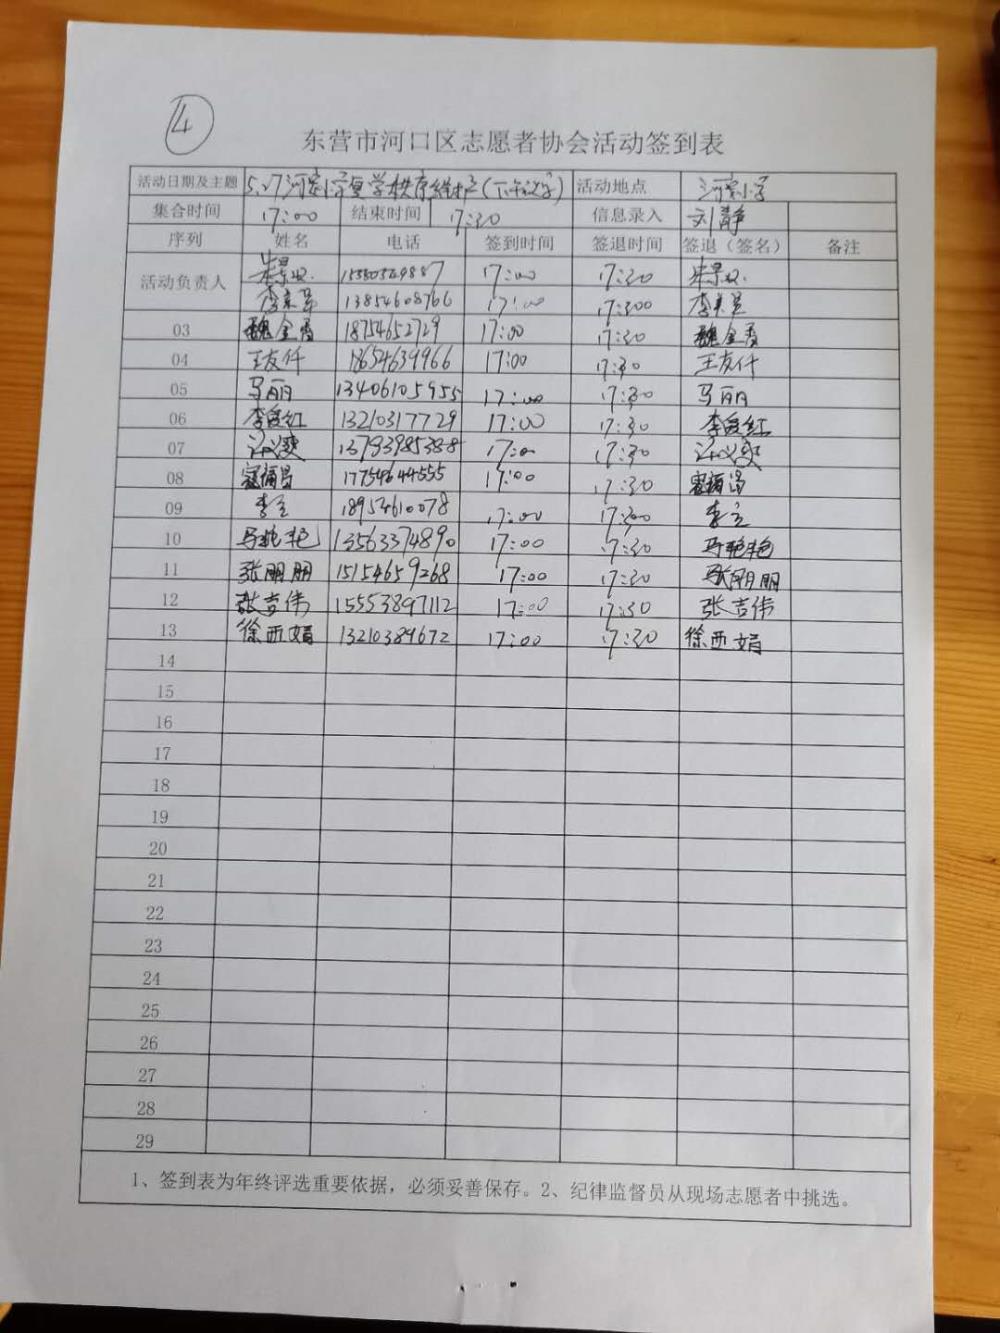 ④
东营市河口区志愿者协会活动签到表
活动日期及主题 5.27 学复学秩序维护(下午放学) 活动地点
集合时间 17:00 结束时间 17:30 信息录入 刘静
序列 姓名 电话 签到时间 签退时间 签退（签名） 备注
活动负责人 17:00 17:30
13854608766 17:00 17:300
03 魏金香 18754652729 17:00 17:30 魏金香
04 王友仟 18654639966 17:00 17:30 王友仟
05 马丽 13406105955 17:00 17:30 马丽
06 李爱红 13210317729 17:00 17:30 李爱红
07 17:00 17:30
08 17754644555 17:00 17:30
09 李立 18954610078 17:00 17:300 李立
10 马艳艳 13563374890 17:00 17:30 马艳艳
11 张朋朋 15154659268 17:00 17:30 张朋朋
12 张吉伟 15553897112 17:00 17:30 张吉伟
13 徐西娟 13210389672 17:00 17:30 徐西娟
14
15
16
17
18
19
20
21
22
23
24
25
26
27
28
29
1、签到表为年终评选重要依据，必须妥善保存。2、纪律监督员从现场志愿者中挑选。